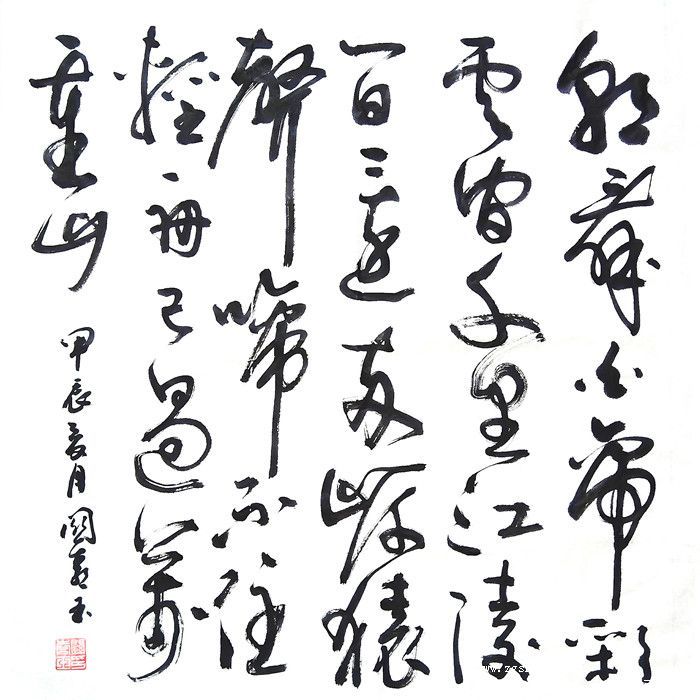 朝辭白帝彩
雲間千里江陵
一日還兩岸猿
聲啼不住
輕舟已過萬
重山
甲辰夏月